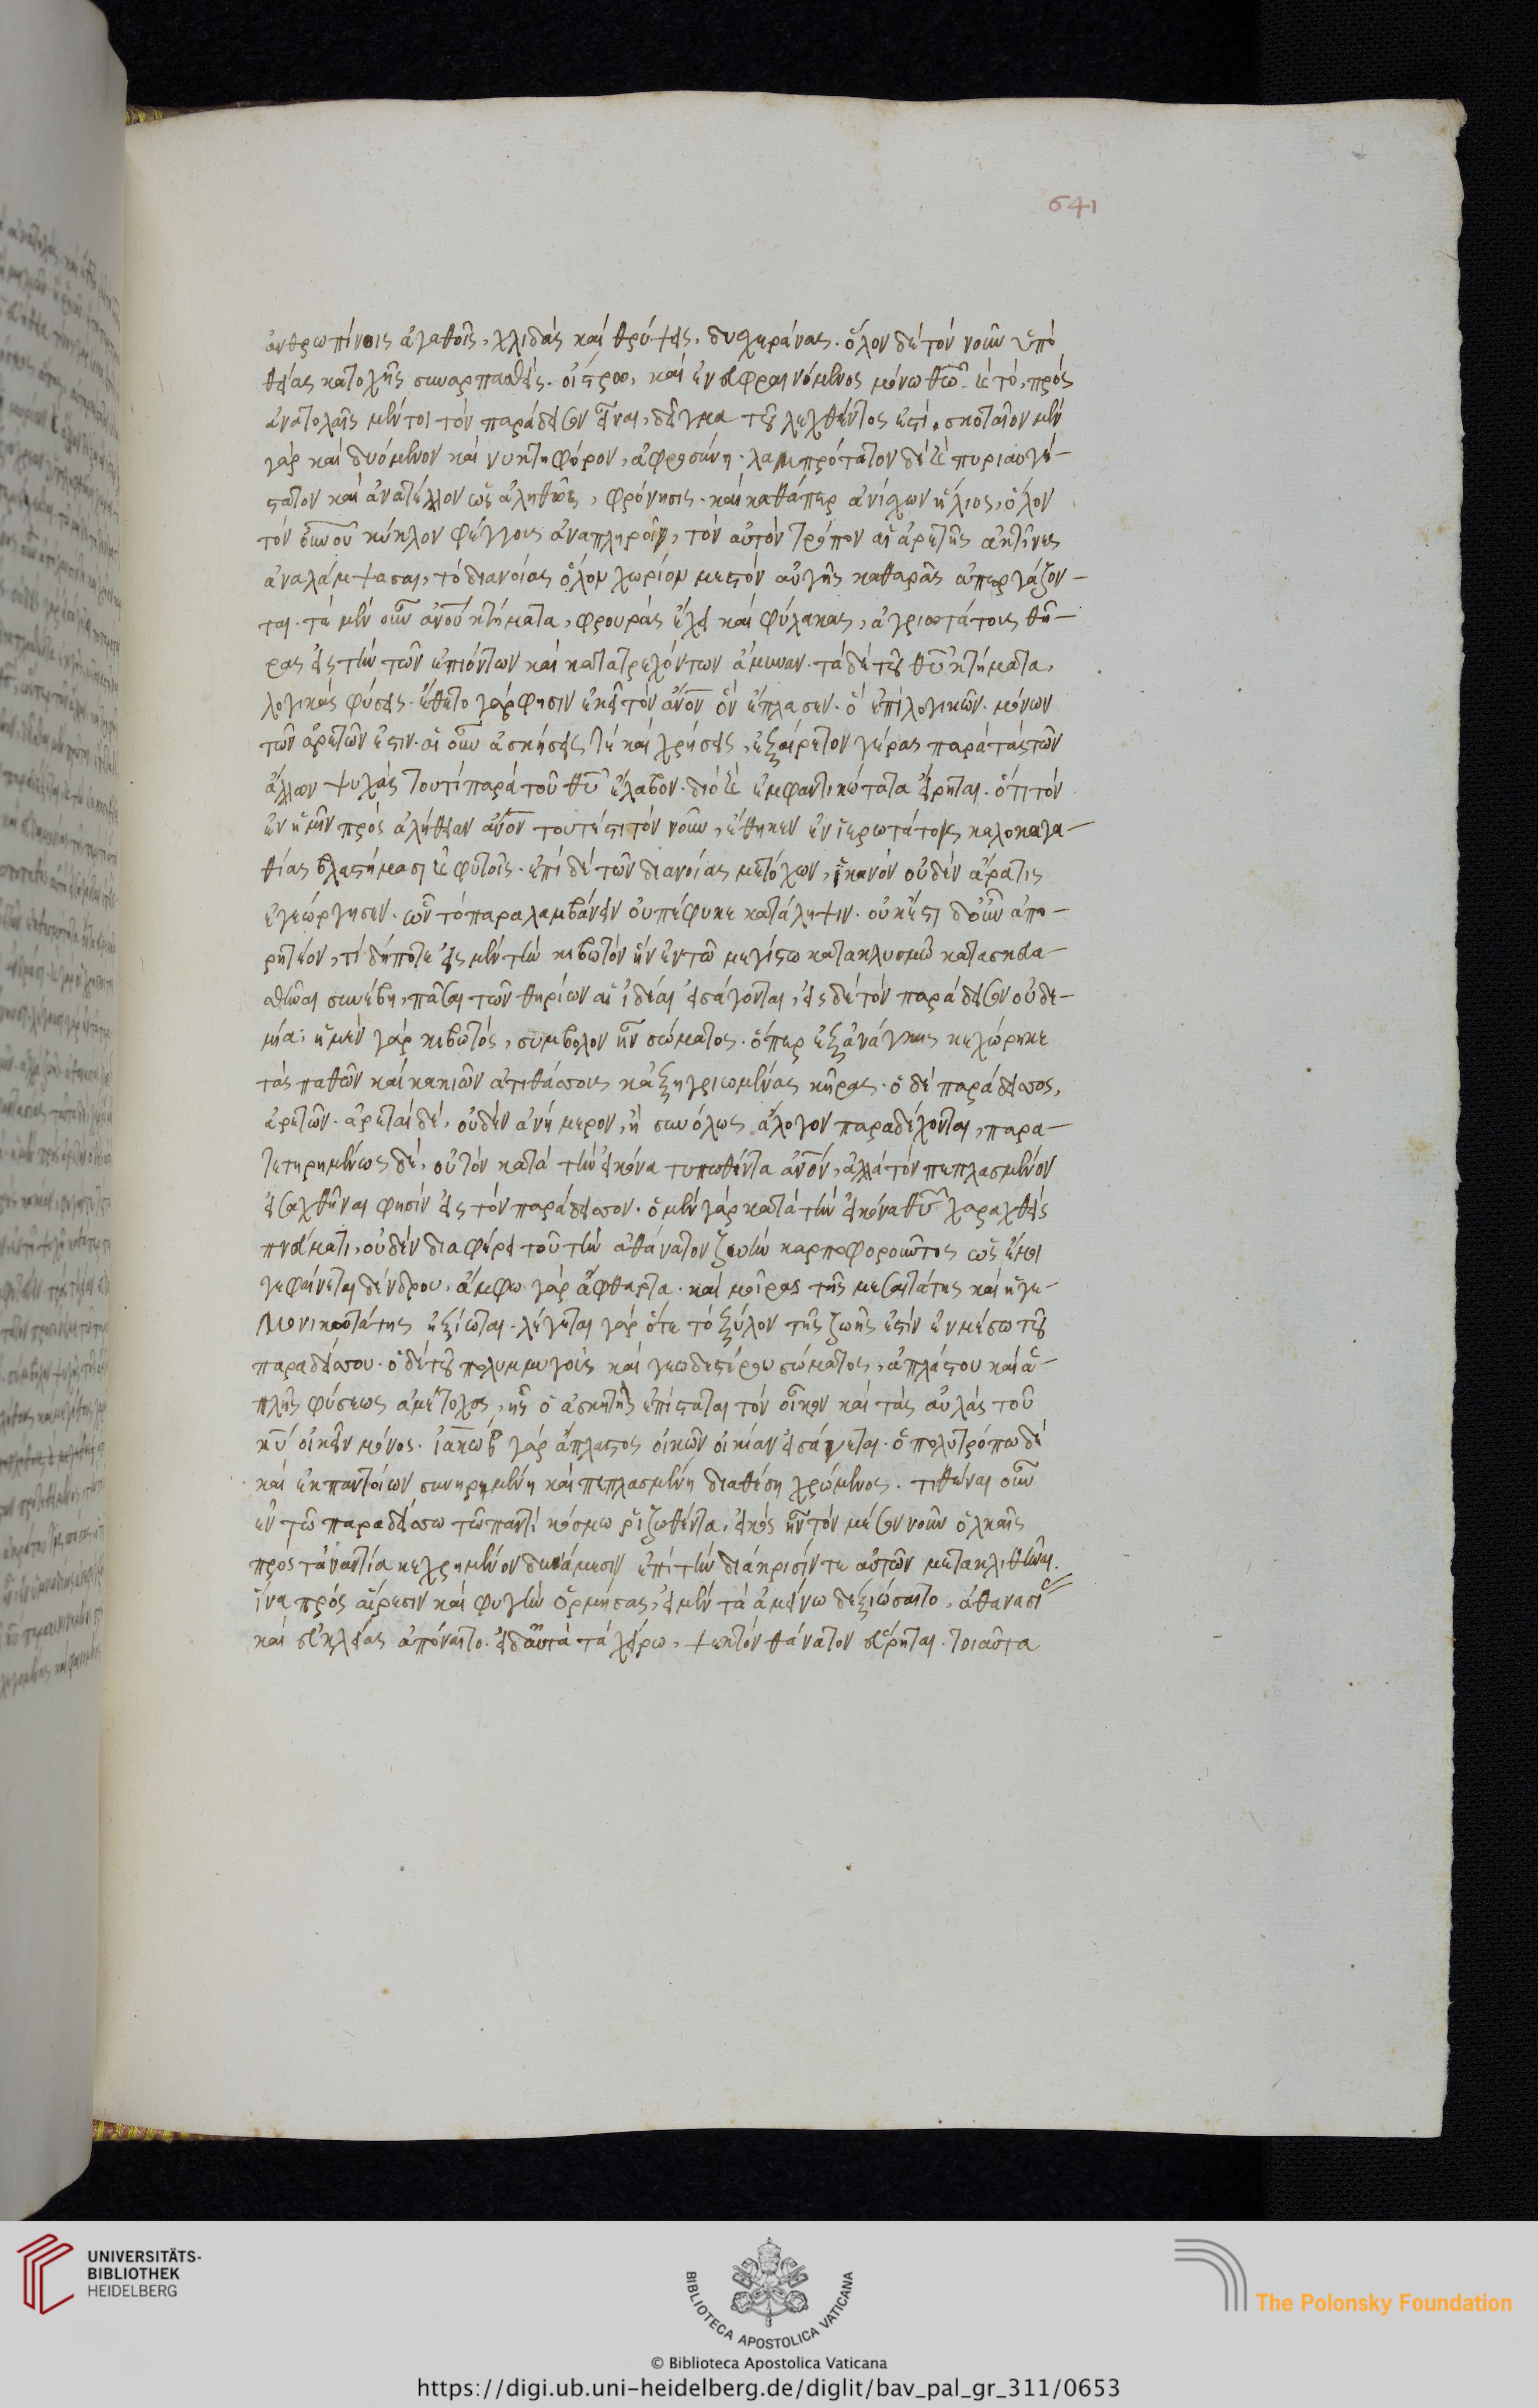 641
ἀνθρωπίνοις ἀγαθοῖς, χλιδάς καί θρύψεις, δυσχεράνας. ὅλον δέ τόν νοῦν ὑπό
θείας κατοχῆς συναρπασθείς. οἴστρω, καί ἐνευφραινόμενος μόνω θω̅. καί τό, πρός
ἀνατολαῖς μέντοι τόν παράδεισον εἶναι, δεῖγμα τοῦ λεχθέντος ἐστί. σκοταῖον μέν
γάρ καί δυόμενον καί νυκτηφόρον, ἀφροσύνη. λαμπρότατον δέ καί πυριαυγέ-
στατον καί ἀνατέλλον ὡς ἀληθῶς, φρόνησις. καί καθάπερ ἀνίσχων ἥλιος, ὅλον
τόν ου̅νο̅υ κύκλον φέγγους ἀναπληροῖ, τόν αὐτόν τρόπον αἱ ἀρετῆς ἀκτῖνες
ἀναλάμψασαι, τό διανοίας ὅλον χωρίον μεστόν αὐγῆς καθαρᾶς ἀπεργάζον-
ται. τά μέν οὖν ἀνο̅υ κτήματα, φρουράς ἔχει καί φύλακας, ἀγριωτάτους θῆ-
ρας εἰς τήν τῶν ἐπιόντων καί κατατρεχόντων ἄμυναν. τά δέ τοῦ θυ̅ κτήματα,
λογικάς φύσεις. ἔθετο γάρ φησιν ἐκεῖ τόν ἀν̅ον ὅν ἔπλασεν. ὅ ἐπί λογικῶν. μόνων
τῶν ἀρετῶν ἐστιν. αἱ οὖν ἀσκήσεις τέ καί χρήσεις, ἐξαίρετον γέρας παρά τάς τῶν
ἄλλων ψυχάς τουτί παρά τοῦ θυ̅ ἔλαβον. διό καί ἐμφαντικώτατα εἴρηται. ὅτι τόν
ἐν ἡμῖν πρός ἀλήθειαν ἀν̅ον τουτέστι τόν νοῦν, ἔθηκεν ἐν ἱερωτάτοις καλοκαγα-
θίας βλαστήμασι καί φυτοῖς. ἐπί δέ τῶν διανοίας μετόχων, ἱκανόν οὐδέν ἄρα τις
ἐγεώργησεν. ὧν τό παραλαμβάνειν οὐ πέφυκε κατάληψιν. οὐκ ἔστι δοῦν ἀπο-
ρητέον, τί δήποτε εἰς μέν τήν κιβωτόν ἥν ἐν τῶ μεγίστω κατακλυσμῶ κατασκευα-
σθῆναι συνέβη, πᾶσαι τῶν θηρίων αἱ ἰδέαι εἰσάγονται, εἰς δέ τόν παράδεισον οὐδε-
μία. ἡ μέν γάρ κιβωτός, σύμβολον ἦν σώματος. ὅπερ ἐξ ἀνάγκης κεχώρηκε
τάς παθῶν καί κακιῶν ἀτιθάσους κἀξηγριωμένας κῆρας. ὁ δέ παράδεισος,
ἀρετῶν. ἀρεταί δέ, οὐδέν ἀνήμερον, ἤ συνόλως ἄλογον παραδέχονται, παρα-
τετηρημένως δέ, οὐ τόν κατά τήν εἰκόνα τυπωθέντα ἀν̅ον, ἀλλά τόν πεπλασμένον
εἰσαχθῆναι φησίν εἰς τόν παράδεισον. ὁ μέν γάρ κατά τήν εἰκόνα θυ̅ χαραχθείς
πνεύματι, οὐδέν διαφέρει τοῦ τήν ἀθάνατον ζωήν καρποφοροῦντος ὡς ἔμοι
γε φαίνεται δένδρου. ἄμφω γάρ ἄφθαρτα. καί μοίρας τῆς μεσαιτάτης καί ἡγε-
μονικωτάτης ἠξίωται. λέγεται γάρ ὅτι τό ξύλον τῆς ζωῆς ἐστίν ἐν μέσω τοῦ
παραδείσου. ὁ δέ τοῦ πολυμιγοῦς καί γεωδεστέρου σώματος, ἀπλάστου καί ἁ-
πλῆς φύσεως ἀμέτοχος, ἧς ὁ ἀσκητής ἐπίσταται τόν οἶκον καί τάς αὐλάς τοῦ
κυ̅ οἰκεῖν μόνος. ἰακώβ γάρ ἄπλαστος οἰκῶν οἰκίαν εἰσάγεται. ὁ πολυτρόπω δέ
καί ἐκ παντοίων συνηρημένη καί πεπλασμένη διαθέσει χρώμενος. τιθέναι οὖν
ἐν τῶ παραδείσω τῶ παντί κόσμω ῥιζωθέντα, εἰκός ἦν τόν μέσον νοῦν ὁλκαῖς
πρός τἀναντία κεχρημένον δυνάμεσιν ἐπί τήν διάκρισίν τε αὐτῶν μετακληθῆναι.
ἵνα πρός αἵρεσιν καί φυγήν ὁρμήσας, εἰ μέν τά ἀμείνω δεξιώσαιτο, ἀθανασί
καί εὐκλείας ἀπόναιτο. εἰ δ' αὐτά τά χείρω, ψεκτόν θάνατον εὕρηται. τοιαῦτα
UNIVERSITÄTS-
BIBLIOTHEK
HEIDELBERG
BIBLIOTECA APOSTOLICA VATICANA
The Polonsky Foundation
© Biblioteca Apostolica Vaticana
https://digi.ub.uni-heidelberg.de/diglit/bav_pal_gr_311/0653